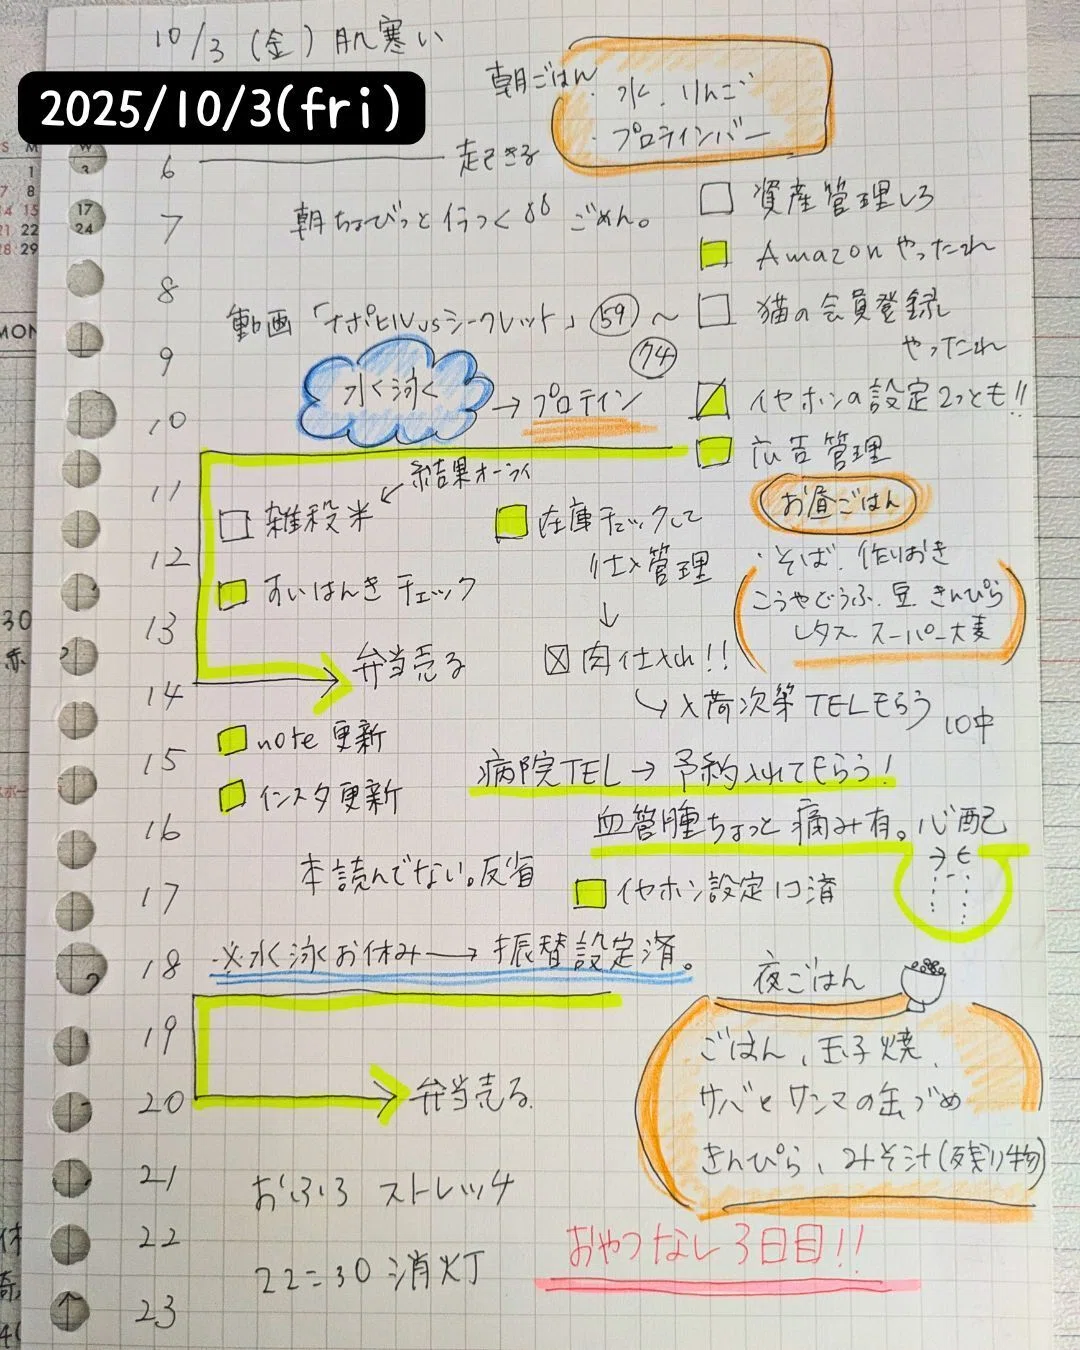 10/3(金)肌寒い
2025/10/3(fri)
朝ごはん
水、りんご
・プロテインバー
6 起きる
7 朝ちょびっと行って ごめん。
8
動画「ナポヒルvsシークレット」59〜
74
9
水泳 → プロテイン
10
□ 資産管理しろ
Amazonやったれ
□ 猫の会員登録
やったれ
イヤホンの設定2つとも!!
広告管理
11
結果オーライ
□ 雑穀米
12
すいはんきチェック
13
弁当売る
14
在庫チェックして
仕入管理
↓
☒ 肉仕入れ!!
↪入荷次第TELもらう
10中
お昼ごはん
・そば、作りおき
こうやどうふ、豆、きんぴら
レタス スーパー大麦
15 note更新
インスタ更新
16
病院TEL→予約入れてもらう!
血管腫ちょっと痛み有。心配
本読んでない。反省
17
イヤホン設定1コ済
18 ※水泳お休み→振替設定済。
19
20 弁当売る
夜ごはん
ごはん、玉子焼、
サバとサンマの缶づめ
きんぴら、みそ汁(残り物)
21 おふろ ストレッチ
22 22:30消灯
おやつなし3日目!!
23